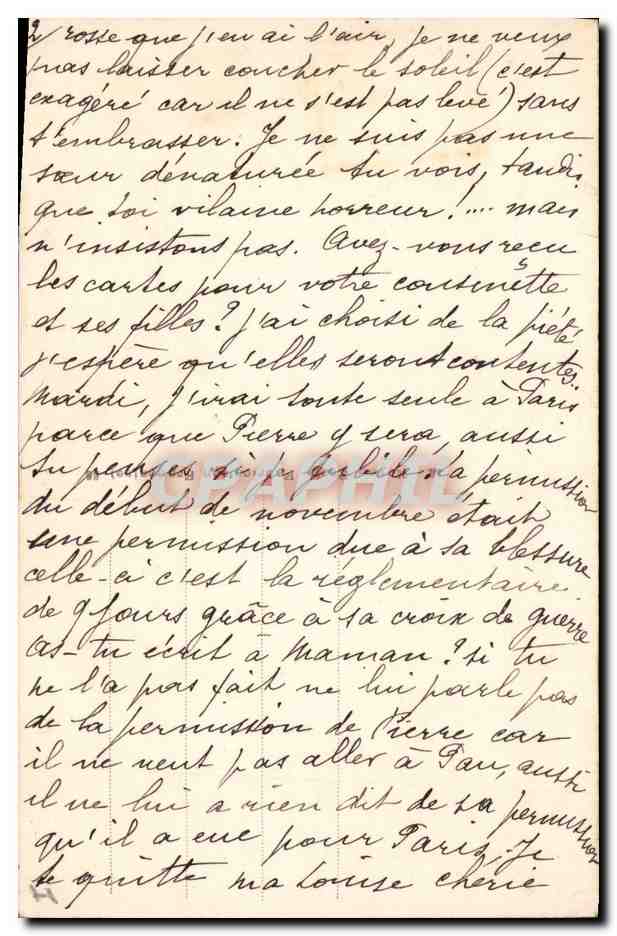 2/ rosse que j'en ai l'air, je ne veux
pas laisser coucher le soleil (c'est
exagéré car il ne s'est pas levé) sans
t'embrasser. Je ne suis pas une
sœur dénaturée tu vois, tandis
que toi vilaine horreur!.... mais
n'insistons pas. Avez-vous reçu
les cartes pour votre cousinette
et ses filles? J'ai choisi de la piété
j'espère qu'elles seront contentes.
Mardi, j'irai toute seule à Paris
parce que Pierre y sera, aussi
tu penses si je jubile. Sa permission
du début de novembre était
une permission due à sa blessure
celle-ci c'est la réglementaire
de 9 jours grâce à sa croix de guerre
As-tu écrit à Maman? si tu
ne l'a pas fait ne lui parle pas
de la permission de Pierre car
il ne veut pas aller à Pau, aussi
il ne lui a rien dit de sa permission
qu'il a eue pour Paris. Je
te quitte ma Louise chérie
CPAPHIL